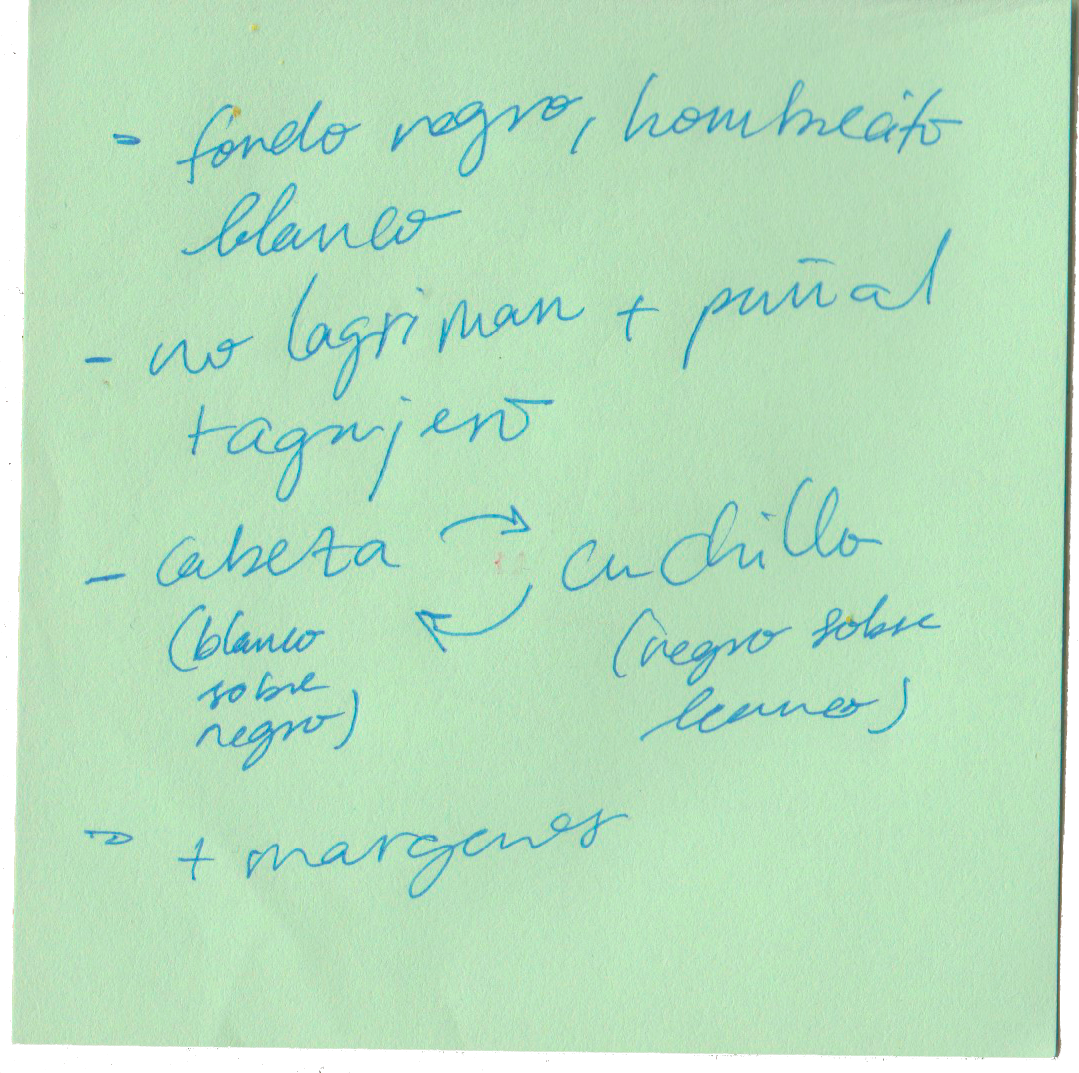 - fondo negro, hombrecito
blanco
- no lagriman + puñal
tagujero
- cabeza → cuchillo
←
(blanco
sobre
negro)
(negro sobre
blanco)
- + margenes